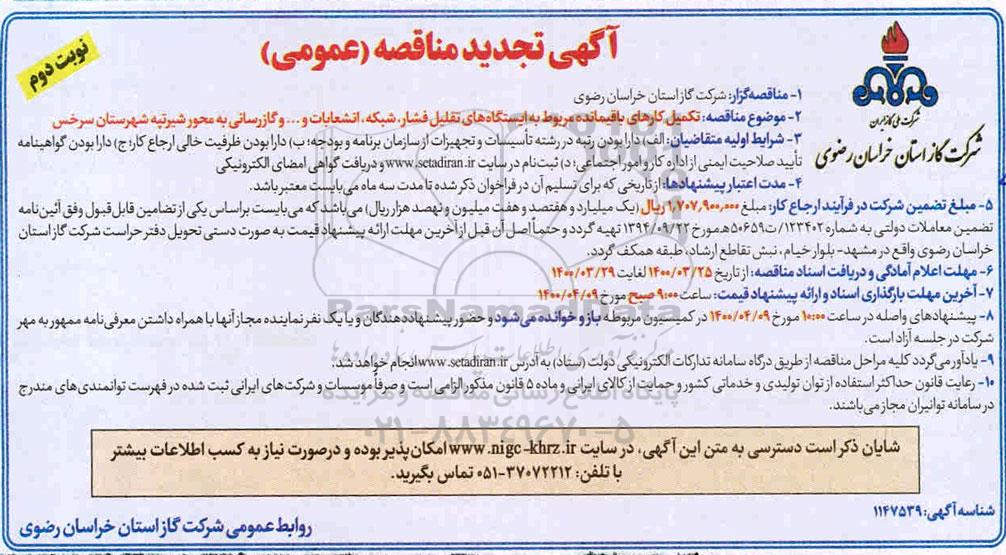 آگهی تجدید مناقصه (عمومی)
نوبت دوم
شرکت ملی گاز ایران
شرکت گاز استان خراسان رضوی
۱- مناقصه‌گزار: شرکت گاز استان خراسان رضوی
۲- موضوع مناقصه: تکمیل کارهای باقیمانده مربوط به ایستگاه‌های تقلیل فشار، شبکه، انشعابات و... و گازرسانی به محور شیرتپه شهرستان سرخس
۳- شرایط اولیه متقاضیان: الف) دارا بودن رتبه در رشته تأسیسات و تجهیزات از سازمان برنامه و بودجه؛ ب) دارا بودن ظرفیت خالی ارجاع کار؛ ج) دارا بودن گواهینامه
تأیید صلاحیت ایمنی از اداره کار و امور اجتماعی؛ د) ثبت‌نام در سایت www.setadiran.ir و دریافت گواهی امضای الکترونیکی
۴- مدت اعتبار پیشنهادها: از تاریخی که برای تسلیم آن در فراخوان ذکر شده تا مدت سه ماه می‌بایست معتبر باشد.
۵- مبلغ تضمین شرکت در فرآیند ارجاع کار: مبلغ ۱,۷۰۷,۹۰۰,۰۰۰ ریال (یک میلیارد و هفتصد و هفت میلیون و نهصد هزار ریال) می‌باشد که می‌بایست براساس یکی از تضامین قابل قبول وفق آئین‌نامه
تضمین معاملات دولتی به شماره ۱۲۳۴۰۲/ت۵۰۶۵۹ه‍ مورخ ۱۳۹۴/۰۹/۲۲ تهیه گردد و حتماً اصل آن قبل از آخرین مهلت ارائه پیشنهاد قیمت به صورت دستی تحویل دفتر حراست شرکت گاز استان
خراسان رضوی واقع در مشهد- بلوار خیام، نبش تقاطع ارشاد، طبقه همکف گردد.
۶- مهلت اعلام آمادگی و دریافت اسناد مناقصه: از تاریخ ۱۴۰۰/۰۳/۲۵ لغایت ۱۴۰۰/۰۳/۲۹
۷- آخرین مهلت بارگذاری اسناد و ارائه پیشنهاد قیمت: ساعت ۹:۰۰ صبح مورخ ۱۴۰۰/۰۴/۰۹
۸- پیشنهادهای واصله در ساعت ۱۰:۰۰ مورخ ۱۴۰۰/۰۴/۰۹ در کمیسیون مربوطه باز و خوانده می‌شود و حضور پیشنهاددهندگان و یا یک نفر نماینده مجاز آنها با همراه داشتن معرفی‌نامه ممهور به مهر
شرکت در جلسه آزاد است.
۹- یادآور می‌گردد کلیه مراحل مناقصه از طریق درگاه سامانه تدارکات الکترونیکی دولت (ستاد) به آدرس www.setadiran.ir انجام خواهد شد.
۱۰- رعایت قانون حداکثر استفاده از توان تولیدی و خدماتی کشور و حمایت از کالای ایرانی و ماده ۵ قانون مذکور الزامی است و صرفاً موسسات و شرکت‌های ایرانی ثبت شده در فهرست توانمندی‌های مندرج
در سامانه توانیران مجاز می‌باشند.
ParsNamadData
پایگاه اطلاع رسانی مناقصه و مزایده
۰۲۱-۸۸۳۴۹۶۷۰-۵
شایان ذکر است دسترسی به متن این آگهی، در سایت www.nigc-khrz.ir امکان‌پذیر بوده و درصورت نیاز به کسب اطلاعات بیشتر
با تلفن: ۳۷۰۷۲۲۱۲-۰۵۱ تماس بگیرید.
شناسه آگهی: ۱۱۴۷۵۳۹
روابط عمومی شرکت گاز استان خراسان رضوی